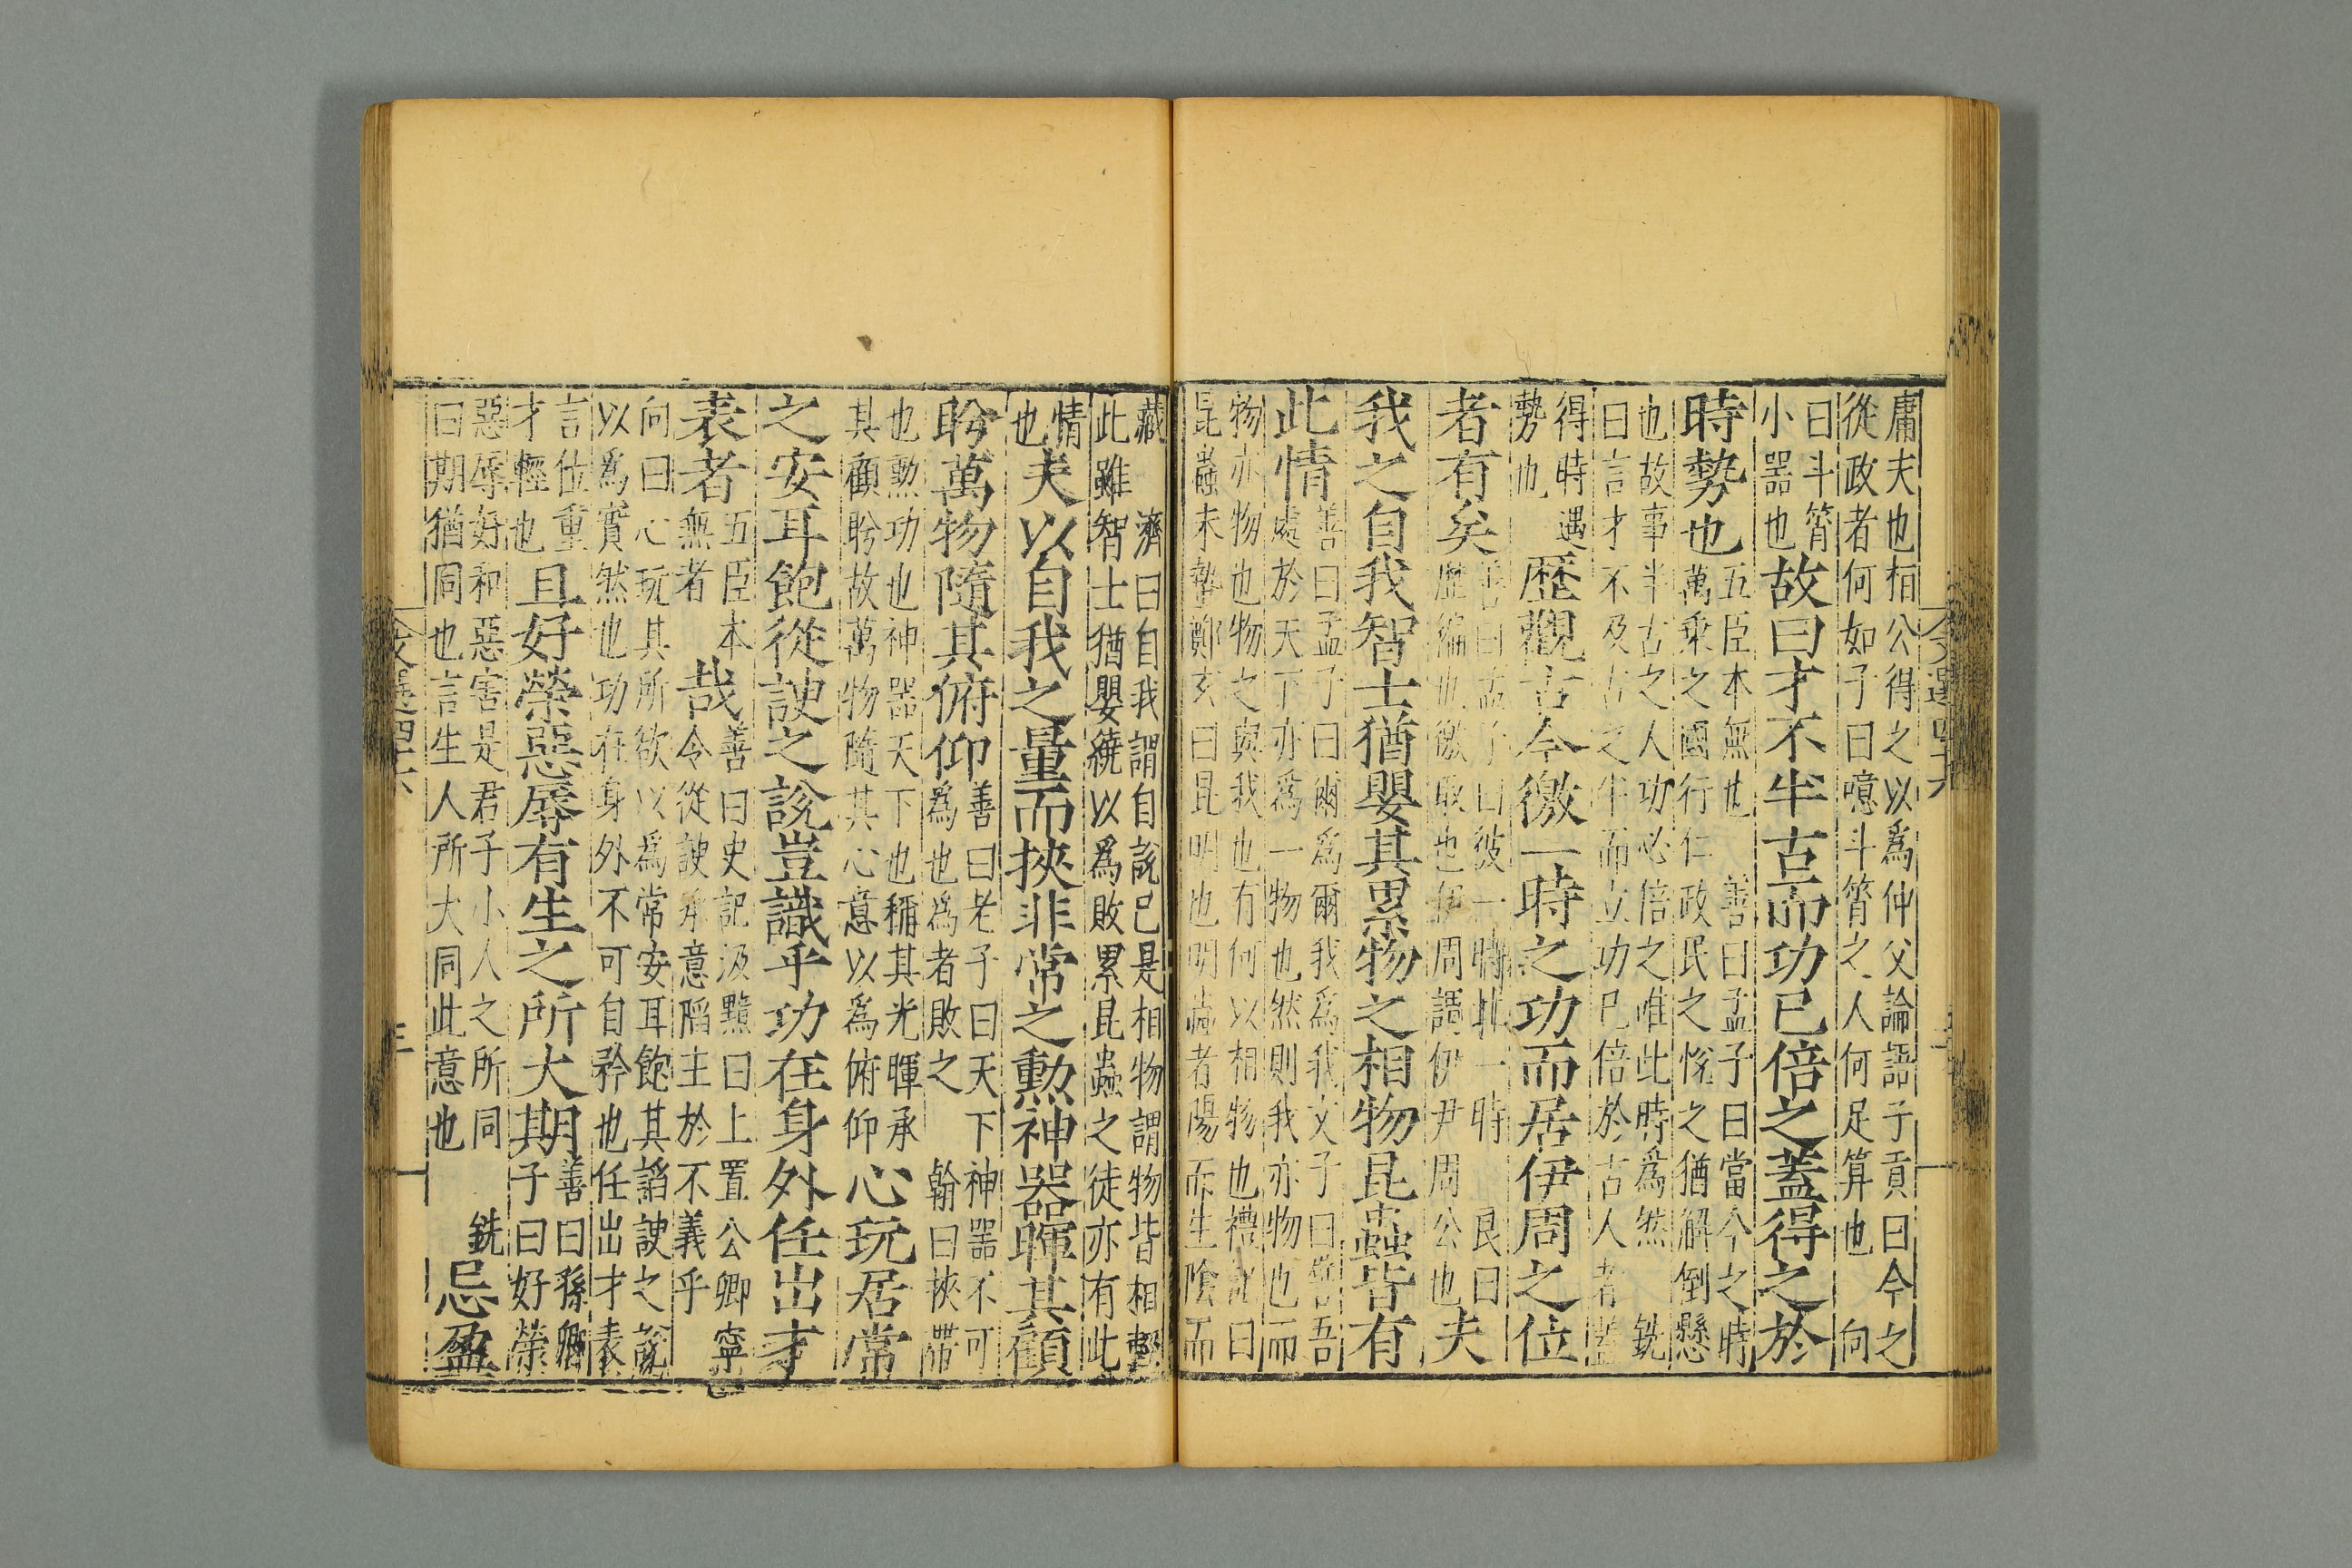 庸夫也桓公得之以爲仲父論語子貢曰今之
從政者何如子曰噫斗筲之人何足算也 向
曰斗筲
小器也
故曰才不半古而功已倍之蓋得之於
時勢也
五臣本無也 善曰孟子曰當今之時
萬乘之國行仁政民之悅之猶解倒懸
也故事半古之人功必倍之唯此時爲然 銑
曰言才不及古之半而立功已倍於古人者蓋
得時遇
勢也
歷觀古今徼一時之功而居伊周之位
者有矣
善曰孟子曰彼一時此一時 良曰
歷編也徼取也伊周謂伊尹周公也
夫
我之自我智士猶嬰其累物之相物昆蟲皆有
此情
善曰孟子曰爾爲爾我爲我文子曰皆吾
處於天下亦爲一物也然則我亦物也而
物亦物也物之與我也有何以相物也禮記曰
昆蟲未蟄鄭玄曰昆明也明蟲者陽而生陰而
藏 濟曰自我謂自說已是相物謂物皆相輕
此雖智士猶嬰繞以爲敗累昆蟲之徒亦有此
情
也
夫以自我之量而挾非常之勳神器暉其顧
盻萬物隨其俯仰
善曰老子曰天下神器不可
爲也爲者敗之 翰曰挾帶
也勳功也神器天下也稱其光暉承
其顧盻故萬物隨其心意以爲俯仰
心玩居常
之安耳飽從諛之說豈識乎功在身外任出才
表者
五臣本
無者
哉
善曰史記汲黯曰上置公卿寧
令從諛承意陷主於不義乎
向曰心玩其所欲以爲常安耳飽其諂諛之說
以爲實然也功在身外不可自矜也任出才表
言位重
才輕也
且好榮惡辱有生之所大期
善曰孫卿
子曰好榮
惡辱好和惡害是君子小人之所同 銑
曰期猶同也言生人所大同此意也
忌盈
文選四十六